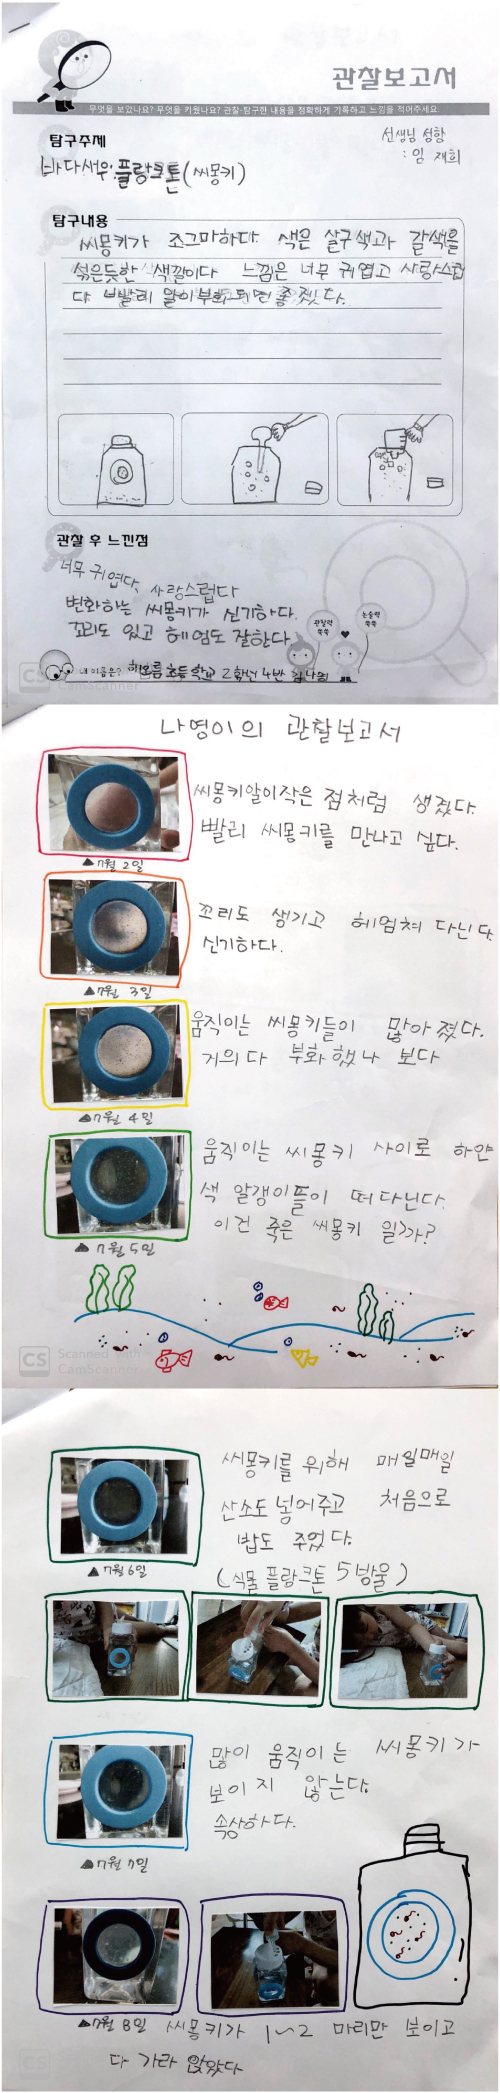 관찰보고서
무엇을 보았나요? 무엇을 키웠나요? 관찰·탐구한 내용을 정확하게 기록하고 느낌을 적어주세요
탐구주제
선생님 성함
: 임 재희
바다새우:플랑크톤(씨몽키)
탐구내용
씨몽키가 조그마하다. 색은 살구색과 갈색을
섞은듯한 색깔이다 느낌은 너무 귀엽고 사랑스럽
다 빨리 알이부화되면 좋겠다.
관찰 후 느낀점
너무 귀엽다, 사랑스럽다
변화하는 씨몽키가 신기하다.
꼬리도 있고 헤엄도 잘한다
관찰력 쑥쑥
논술력 쑥쑥
내 이름은? 해오름초등학교 2학년 4반
CS CamScanner
나영이의 관찰보고서
씨몽키알이작은 점처럼 생겼다.
빨리 씨몽키를 만나고 싶다.
▲7월 2일
꼬리도 생기고 헤엄쳐 다닌다
신기하다.
▲7월 3일
움직이는 씨몽키들이 많아 졌다.
거의 다 부화했나 보다
▲7월 4일
움직이는 씨몽키 사이로 하얀
색 알갱이들이 떠다닌다.
이건 죽은 씨몽키 일까?
▲7월 5일
CS Scanned with
CamScanner
씨몽키를 위해 매일매일
산소도 넣어주고 처음으로
밥도 주었다.
▲7월6일
(식물 플랑크톤 5방울)
많이 움직이는 씨몽키가
보이지 않는다.
속상하다.
▲7월 7일
▲7월 8일 씨몽키가 1~2 마리만 보이고
다 가라 앉았다
CS